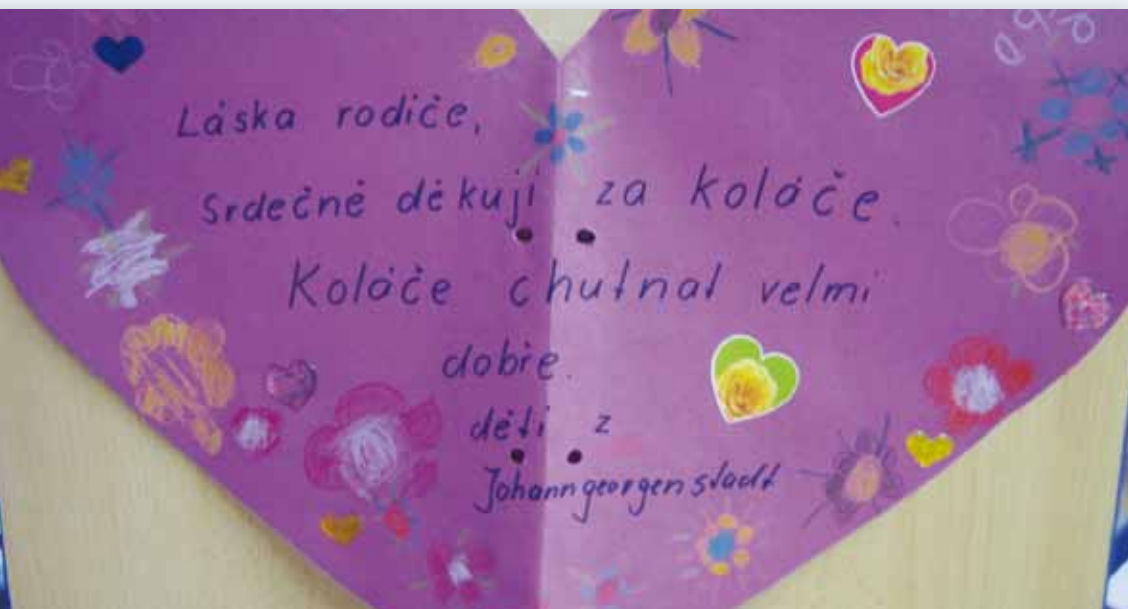 Láska rodiče,
Srdečně děkuji za koláče.
Koláče chutnat velmi
dobře.
děti z
Johanngeorgenstadt